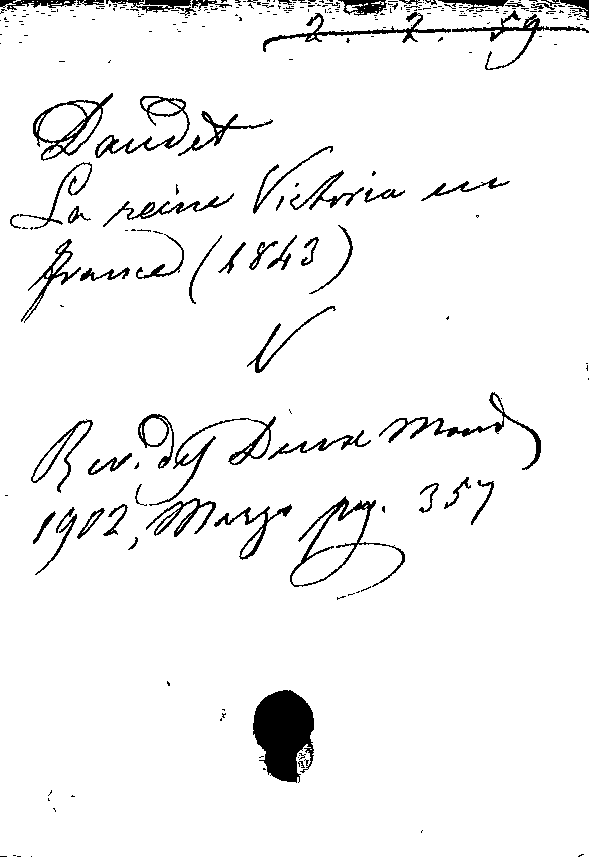 2. 2. 59
Daudet
La reine Victoria en
france (1843)
V
Rev. des Deux Mond
1902, Marzo pag. 357